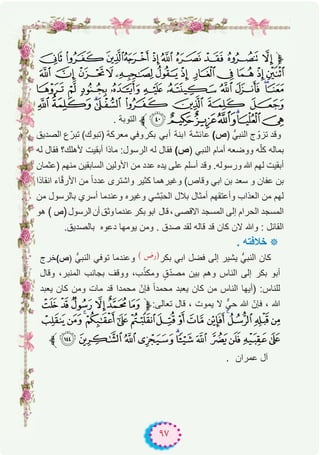 ﴿ إِلَّا تَنصُرُوهُ فَقَدْ نَصَرَهُ اللَّهُ إِذْ أَخْرَجَهُ الَّذِينَ كَفَرُوا ثَانِيَ
اثْنَيْنِ إِذْ هُمَا فِي الْغَارِ إِذْ يَقُولُ لِصَاحِبِهِ لَا تَحْزَنْ إِنَّ اللَّهَ
مَعَنَا فَأَنزَلَ اللَّهُ سَكِينَتَهُ عَلَيْهِ وَأَيَّدَهُ بِجُنُودٍ لَّمْ تَرَوْهَا
وَجَعَلَ كَلِمَةَ الَّذِينَ كَفَرُوا السُّفْلَى وَكَلِمَةُ اللَّهِ
هِيَ الْعُلْيَا وَاللَّهُ عَزِيزٌ حَكِيمٌ ٤٠ ﴾ التوبة .
وقد تزوّج النبيُّ (ص) عائشة ابنة أبي بكر وفي معركة (تبوك) تبرّع الصديق
بماله كلّه ووضعه أمام النبي (ص) فقال له الرسول: ماذا أبقيت لأهلك؟ فقال له
أبقيت لهم الله ورسوله. وقد أسلم على يده عدد من الأولين السابقين منهم (عثمان
بن عفان و سعد بن ابي وقاص) وغيرهما كثير واشترى عدداً من الأرقّاء انقاذا
لهم من العذاب وأعتقهم أمثال بلال الحبّشي وغيره وعندما أسري بالرسول من
المسجد الحرام إلى المسجد الاقصى ، قال ابو بكر عندما وثق أن الرسول (ص ) هو
القائل : والله لان كان قد قاله لقد صدق . ومن يومها دعوه بالصديق.
* خلافته .
كان النبيُّ يشير إلى فضل ابي بكر (رض ) وعندما توفي النبيُّ (ص)خرج
أبو بكر إلى الناس وهم بين مصدّقٍ ومكذّب، ووقف بجانب المنبر، وقال
للناس: (أيها الناس من كان يعبد محمداً فإنّ محمدا قد مات ومن كان يعبد
الله ، فإنّ الله حيٌّ لا يموت ، قال تعالى: ﴿ وَمَا مُحَمَّدٌ إِلَّا رَسُولٌ قَدْ خَلَتْ
مِن قَبْلِهِ الرُّسُلُ أَفَإِيْن مَّاتَ أَوْ قُتِلَ انقَلَبْتُمْ عَلَى أَعْقَابِكُمْ وَمَن يَنقَلِبْ
عَلَى عَقِبَيْهِ فَلَن يَضُرَّ اللَّهَ شَيْئًا وَسَيَجْزِي اللَّهُ الشَّاكِرِينَ ١٤٤ ﴾
آل عمران .
٩٧